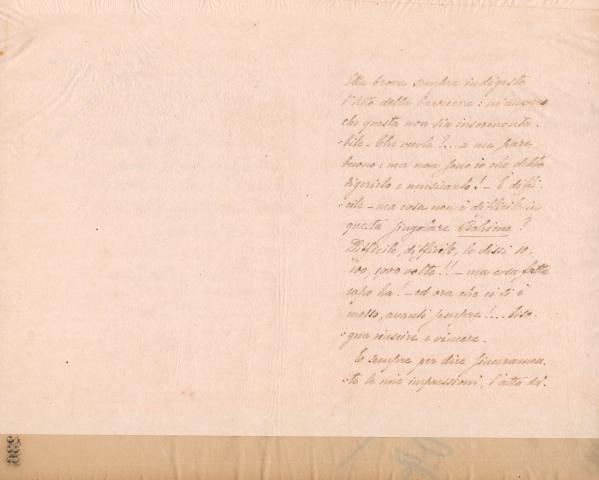 Ella trova sempre indigesto
l'atto della barriera: m'auguro
che questa non sia insormonta-
-bile - Che vuole?... a me pare
buono: ma non sono io che debbo
digerirlo e musicarlo! - È diffi-
-cile - ma cosa non è difficile in
questa singolare Bohème?
Difficile, difficile, lo dissi 10,
100, 1000 volte!! - ma cosa fatta
capo ha! - ed ora che ci si è
messo, avanti sempre!... biso-
-gna riuscire e vincere.
E sempre per dire sinceramen-
-te le mie impressioni, l'atto
336